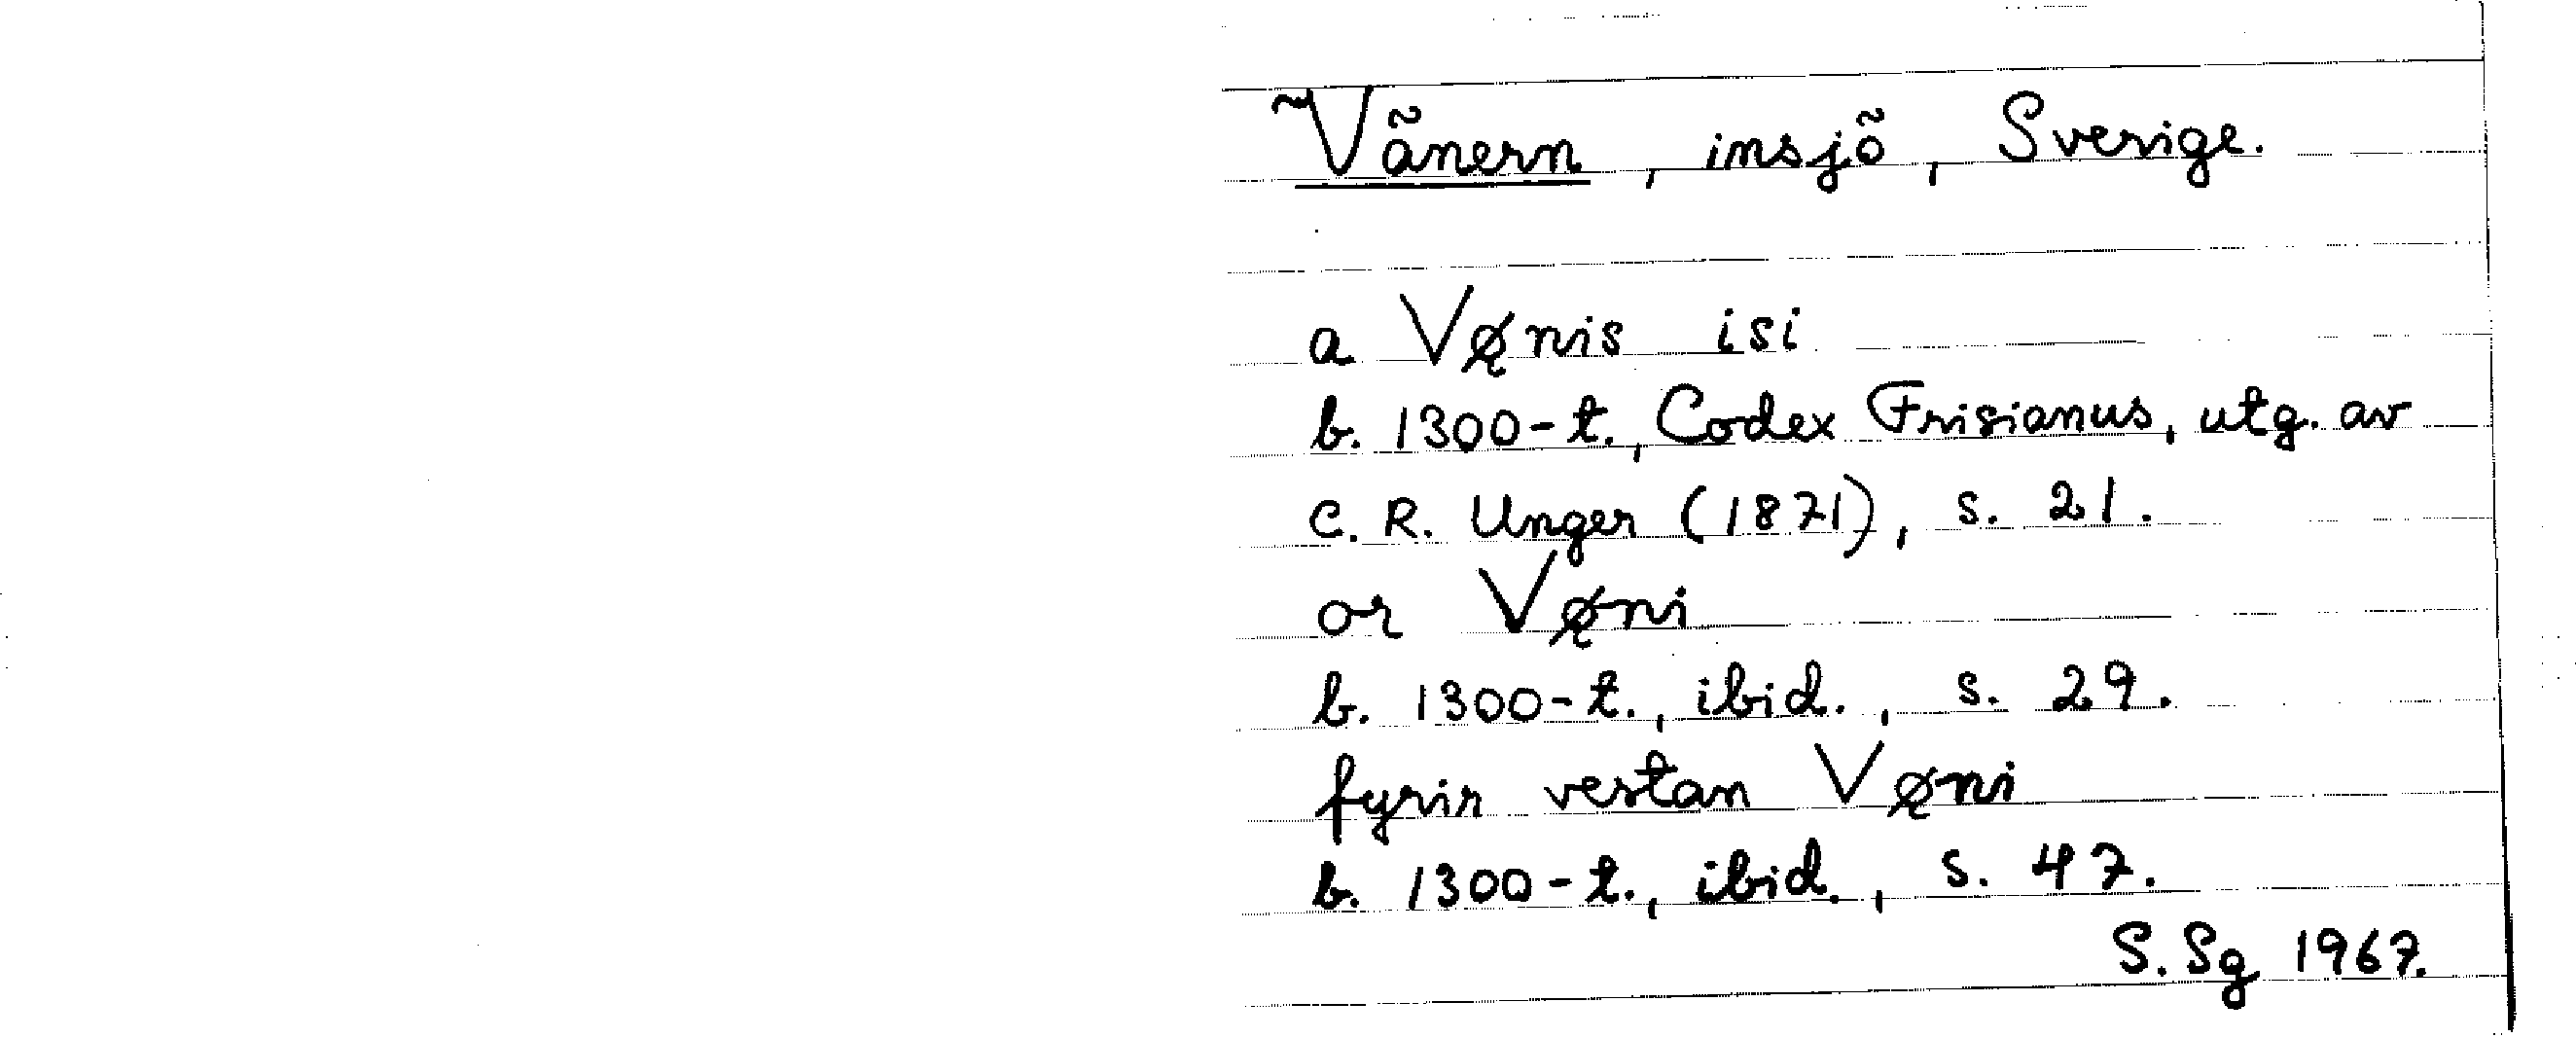 Vänern, insjö, Sverige.
a Vø̨nis isi
b. 1300-t., Codex Frisianus, utg. av
C. R. Unger (1871), s. 21.
or Vø̨ni
b. 1300-t., ibid., s. 29.
fyrir vestan Vø̨ni
b. 1300-t., ibid., s. 47.
S. Sg 1967.